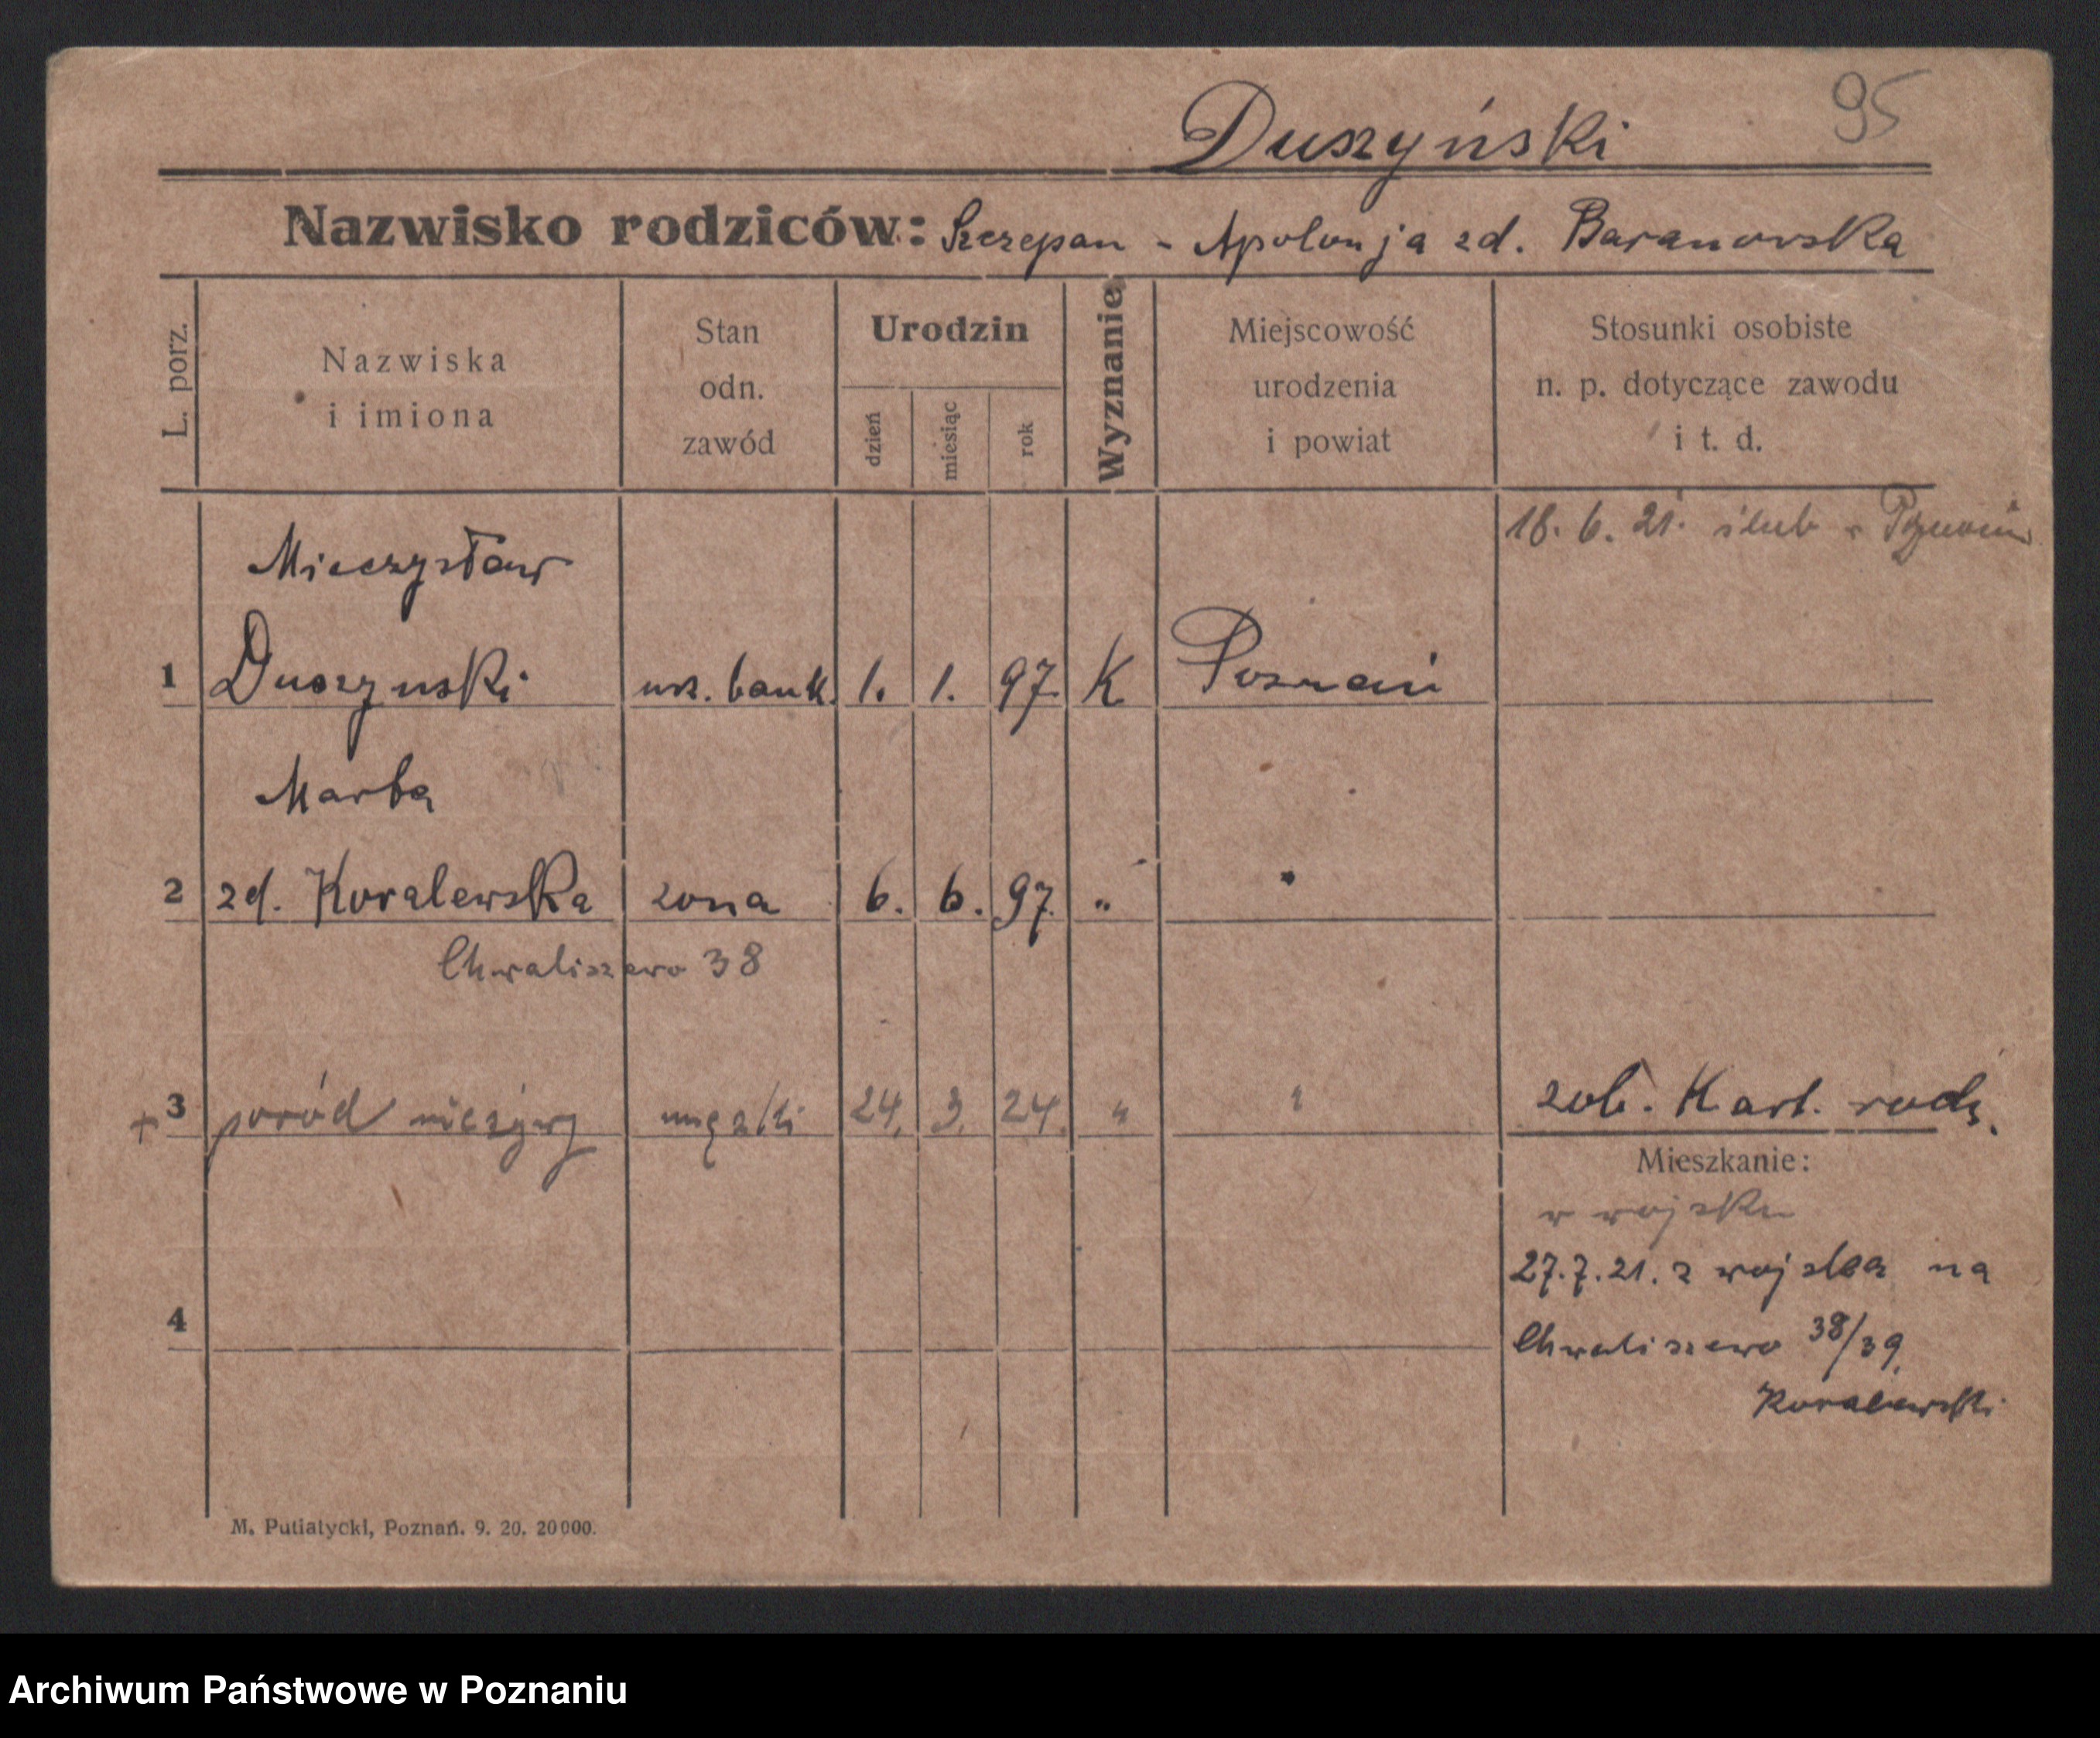 95
Duszyński
Nazwisko rodziców: Szczepan - Apolonja zd. Baranowska
L. porz.
Nazwiska
i imiona
Stan
odn.
zawód
Urodzin
dzień
miesiąc
rok
Wyznanie
Miejscowość
urodzenia
i powiat
Stosunki osobiste
n. p. dotyczące zawodu
i t. d.
18. 6. 21. ślub w Poznaniu
Mieczysław
1 Duszynski urz. bank. 1. 1. 97. K Poznań
Marta
2 zd. Koralewska zona 6. 6. 97. " "
Chwaliszewo 38
+ 3 poród nieżywy męzki 24. 3. 24. " " zob. Kart. rodz.
Mieszkanie:
w wojsku
27.7.21. z wojska na
4 Chwaliszewo 38/39
Koralewski
M. Putiatycki, Poznań. 9. 20. 20000.
Archiwum Państwowe w Poznaniu